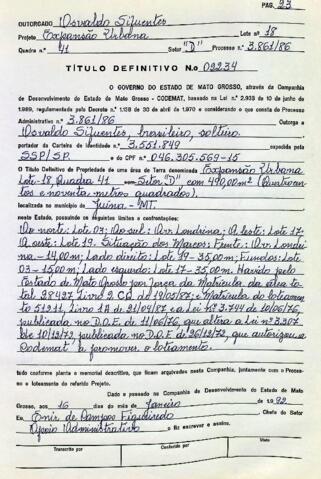 PAG. 23
OUTORGADO Osvaldo Sifuentes
Projeto Expansão Urbana Lote nº 18
Quadra nº 41 Setor "D" Processo nº 3.861/86
TÍTULO DEFINITIVO No. 02234
O GOVERNO DO ESTADO DE MATO GROSSO, através da Companhia
de Desenvolvimento do Estado de Mato Grosso - CODEMAT, baseado na Lei nº 2.933 de 10 de junho
1.969, regulamentada pelo Decreto nº 1.138 de 30 de abril de 1970 e considerando o que consta do Processo
Administrativo n.º 3.861/86 Outorga a
Osvaldo Sifuentes, brasileiro, solteiro.
portador da Carteira de Identidade n.º 3.551.849 expedida pela
SSP/SP. e do CPF n.º 046.305.569-15
O Título Definitivo de Propriedade de uma área de Terra denominada Expansão Urbana
Lote-18, Quadra 41 com Setor "D" com 490,00m² (Quatrocen
tos e noventa metros quadrados).
localizada no município de Juina-MT.
neste Estado, possuindo os seguintes limites e confrontações:
Ao norte: Lote 03; Ao sul: Av Londrina; A leste: Lote 17
A oeste: Lote 19. Situação dos Marcos: Frente: Av: Londri
na. - 14,00m; Lado direito: Lote 19 - 35,00m; Fundos: Lote
03 - 15,00m; Lado esquerdo: Lote 17 - 35,00m. Havido pelo
Estado de Mato Grosso por força da Matrícula da área to
tal 28427 Livro 2 de 19/05/87; e Matrícula do loteamen
to 51211, Livro 1A de 21/04/87 e a Lei nº 3.744 de 10/06/76,
publicada no D.O.E. de 11/06/76, que altera a Lei nº 3.307
de 10/12/72, publicada no D.O.E. de 20/12/72, que autorizou a
Codemat a promover o loteamento.
tudo conforme planta e memorial descritivo, que ficam arquivados nesta Companhia, juntamente com o Proces-
so e loteamento do referido Projeto.
Dado e passado na Companhia de Desenvolvimento do Estado de Mato
Grosso, aos 16 dias do mês de Janeiro de 1.992
Eu, Enir de Campos Figueiredo Chefe do Setor
Apoio Administrativo o fiz escrever e assino.
Transcrito por Conferido por Visto